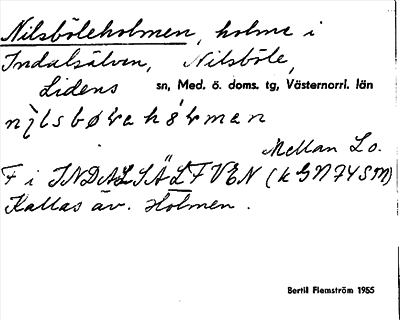 Nilsböleholmen, holme i
Indalsälven, Nilsböle,
Lidens sn, Med. ö. doms. tg, Västernorrl. län
Mellan L o.
F i INDALSÄLFVEN (k GN74SM)
Kallas äv. Holmen.
Bertil Flemström 1955